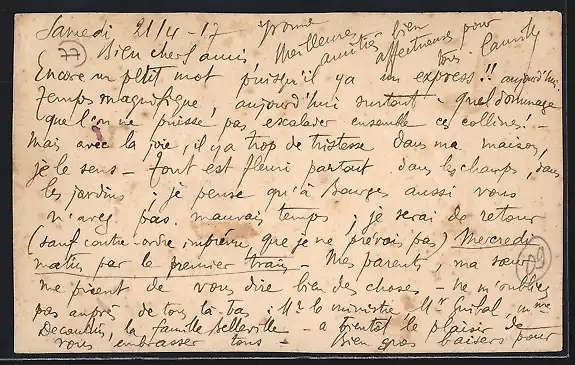 Samedi 21/4-17
77
Yvonne
Meilleures bien pour
amitiés affectueuses tous. Camille
Bien chers amis
Encore un petit mot puisqu'il y a un express !! aujourd'hui
temps magnifique, aujourd'hui surtout - quel dommage
que l'on ne puisse pas escalader ensemble ces collines! -
Mais avec la joie, il y a trop de tristesse dans ma maison,
je le sens - tout est fleuri partout dans les champs, dans
les jardins : je pense qu'à Bourges aussi vous
n'avez pas mauvais temps ; je serai de retour
(sauf contre-ordre imprévu, que je ne prévois pas) Mercredi
matin par le premier train Mes parents, ma soeur
me prient de vous dire bien des choses - ne m'oubliez
pas auprès de tous là-bas : Mr le ministre Mr Guibal Mme
la famille Belleville - a bientôt le plaisir de
vous embrasser tous - Bien gros baisers pour